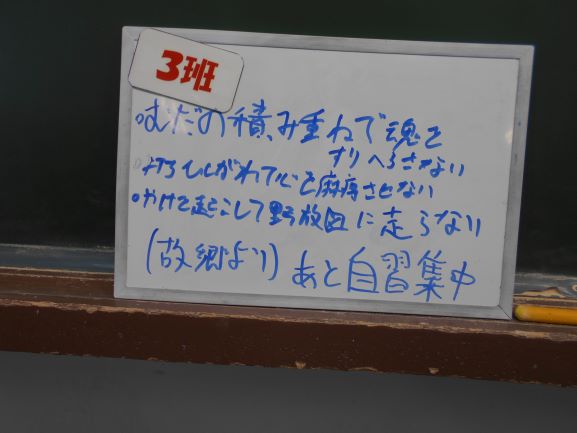 3班
・むだの積み重ねで魂を
すりへらさない
・打ちひしがれて心を麻痺させない
・やけを起こして野放図に走らない
(故郷より) あと自習集中